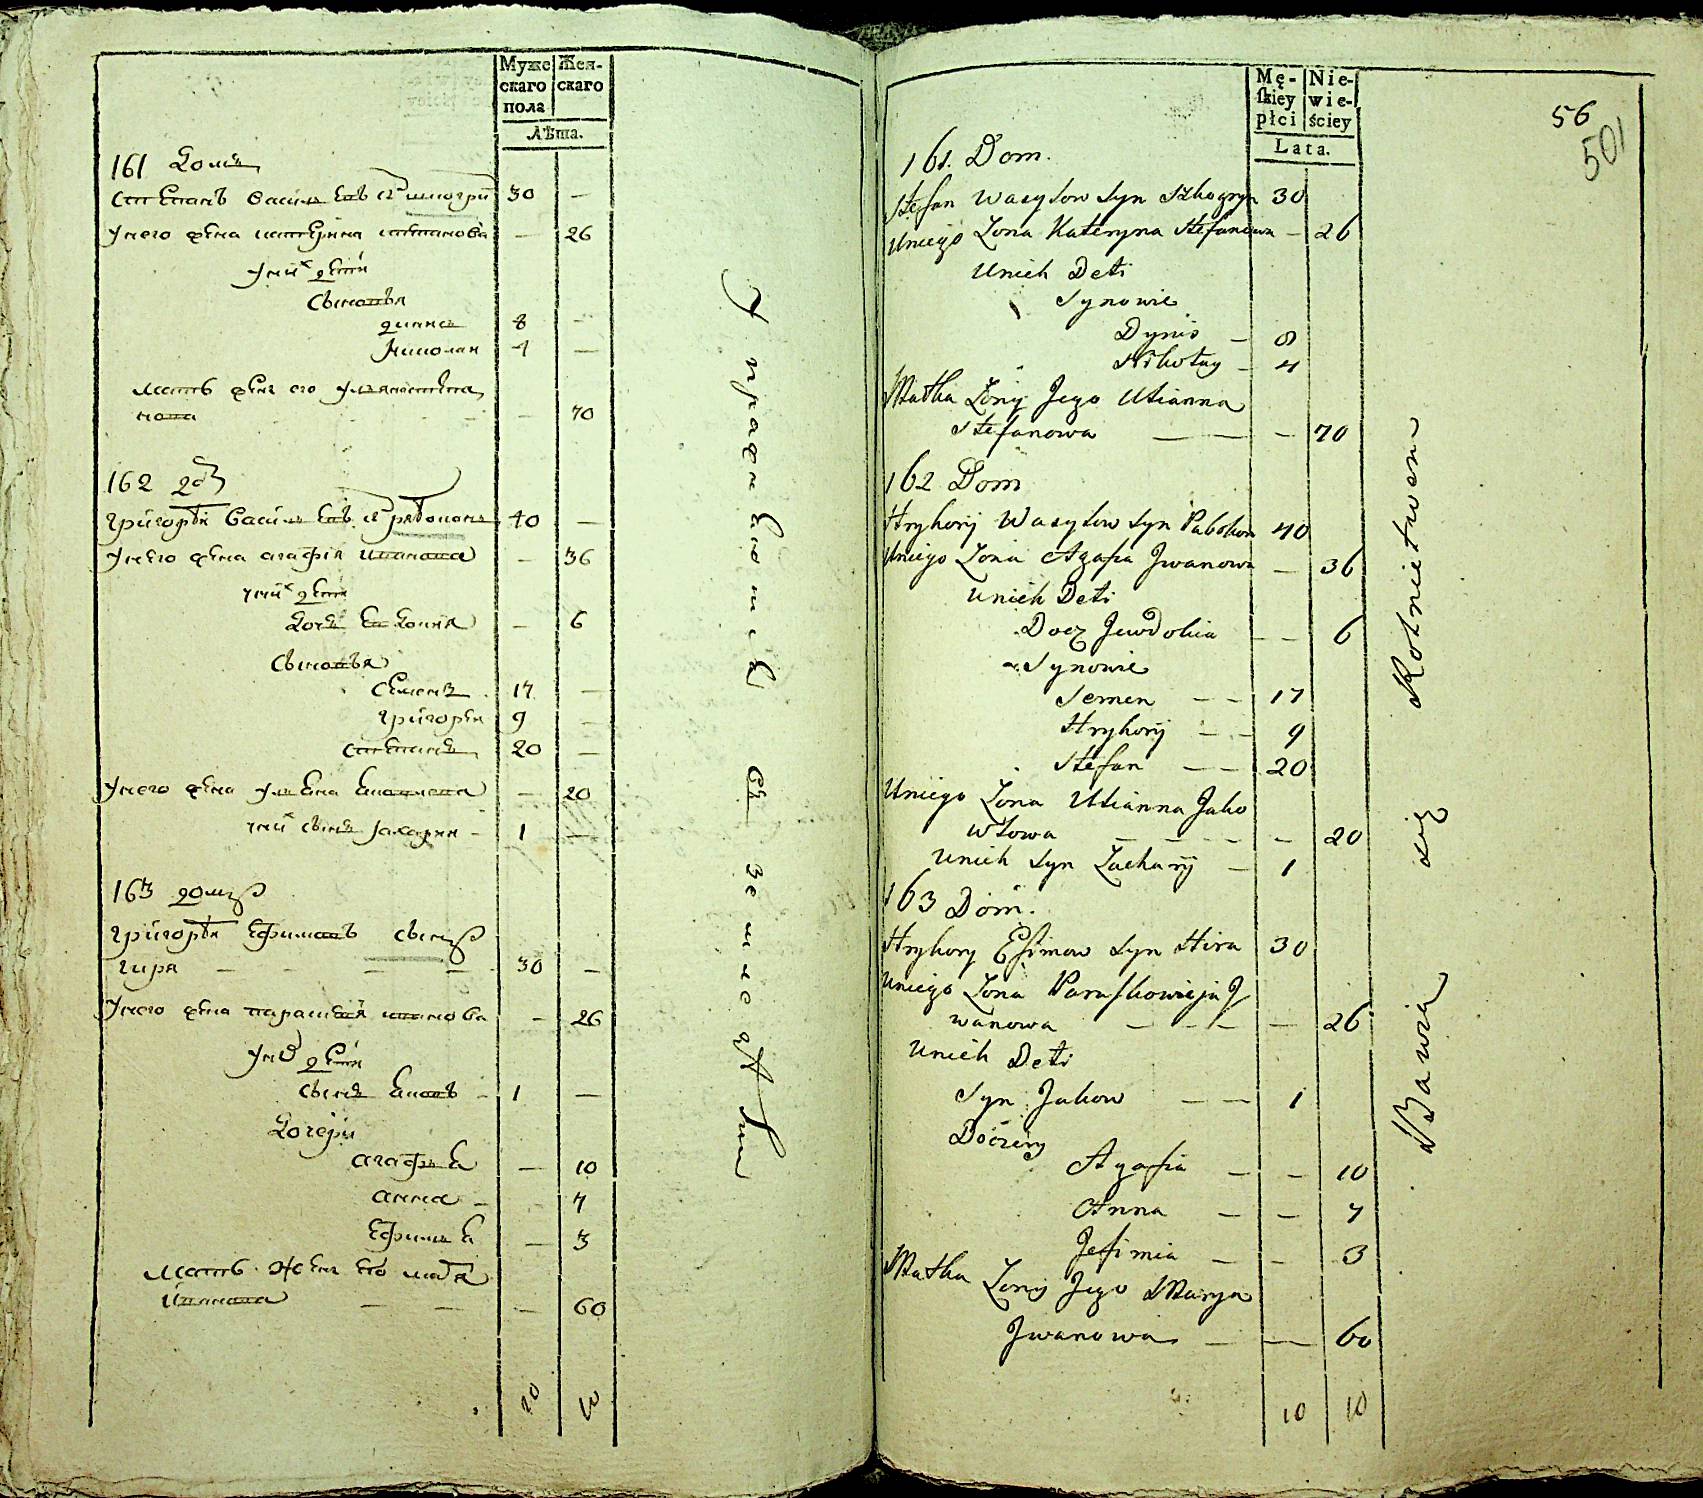 Муже
скаго
пола
Жен-
скаго
Лѣта.
161 Домъ
Степанъ Василь евъ 30 —
Унего жена катерина степанова — 26
Уних дети
Сыновья
динисъ 8 —
Николаи 4 —
Мать жени его Ульяна степа
нова — 70
162 до
Григорѣи Василь евъ с рябоконь 40 —
Унего жена агафия иванова — 36
уних дети
Дочь Евдокия — 6
Сыновья
Семенъ 17 —
Григорѣи 9 —
Степанъ 20 —
Унего жена ульяна яковлева — 20
уних сынъ захарии — 1 —
163 домъ
Григорѣи Ефимовъ сынъ
гиря — — — — 30 —
Унего жена параскевия иванова — 26
Уних дети
сынъ яковъ — 1 —
Дочери
агафья — 10
анна — — 7
Ефимья — 3
Мать жени его маря
Иванова — — — 60
10 10
Упражняются в земледѣл
Mę-
ſkiey
płci
Nie-
wie-
ściey
Lata.
56
501
161. Dom.
Stefan Wasylow Syn 30
Uniego Zona Kateryna Stefanowa — 26
Unich Deti
Synowie
Dynis — 8
Nikołay — 4
Matka Zony Jego Ulianna
Stefanowa — — — 70
162 Dom
Hryhory Wasylow Syn Rabokon 40
Uniego Zona Agafia Jwanowa — 36
Unich Deti
Docz Jewdokia — — 6
Synowie
Semen — — 17
Hryhory — — 9
Stefan — — 20
Uniego Zona Ulianna Jako
włowa — — — — — 20
Unich Syn Zachary — 1
163 Dom.
Hryhory Efimow Syn Hira 30
Uniego Zona Paraſkowieja J
wanowa — — — — 26
Unich Deti
Syn Jakow — — 1
Doczery
Agafia — — 10
Anna — — 7
Jefimia — — 3
Matka Zony Jego Marya
Jwanowa — — 60
10 10
Bawią się Rolnictwem